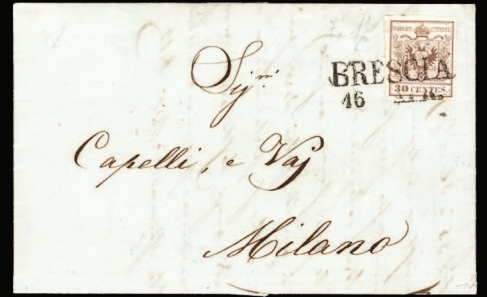 BRESCIA
16 APR.
30 CENTES.
Sigri
Capelli, e Vaj
Milano